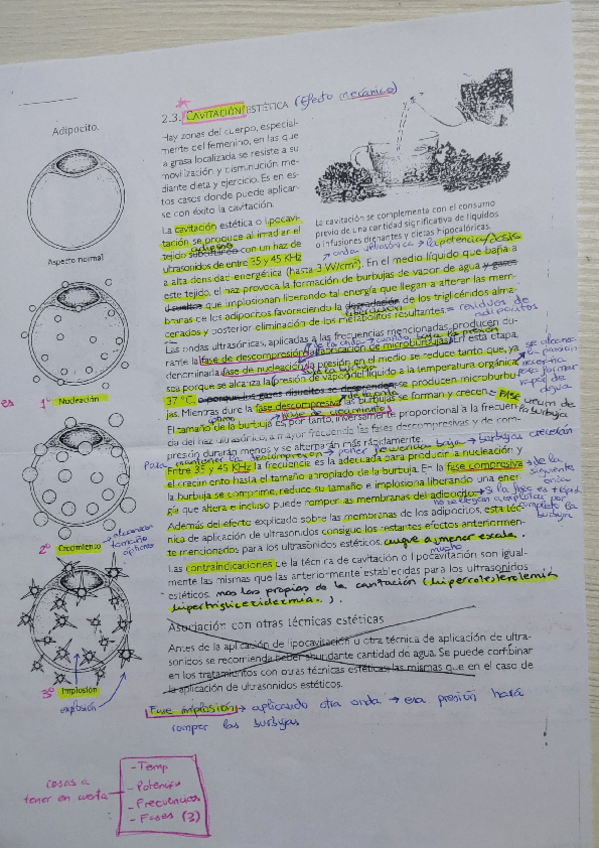 2.3. CAVITACIÓN ESTÉTICA (Efecto mecánico)
Adipocito.
Aspecto normal
1º Nucleación
2º Crecimiento → alcanzan
tamaño
óptimo
3º Implosión
explosión
Hay zonas del cuerpo, especial-
mente el femenino, en las que
la grasa localizada se resiste a su
movilización y disminución me-
diante dieta y ejercicio. Es en es-
tos casos donde puede aplicar-
se con éxito la cavitación.
La cavitación se complementa con el consumo
previo de una cantidad significativa de líquidos
o infusiones drenantes y dietas hipocalóricas.
La cavitación estética o lipocavi-
tación se produce al irradiar el
tejido subcutáneo con un haz de
adiposo
ultrasonidos de entre 35 y 45 KHz
a alta densidad energética (hasta 3 W/cm²). En el medio líquido que baña a
este tejido, el haz provoca la formación de burbujas de vapor de agua y gases
disueltos que implosionan liberando tal energía que llegan a alterar las mem-
branas de los adipocitos favoreciendo la degradación de los triglicéridos alma-
cenados y posterior eliminación de los metabolitos resultantes = residuos de
adipocitos
Las ondas ultrasónicas, aplicadas a las frecuencias mencionadas, producen du-
rante la fase de descompresión la formación de microburbujas. En esta etapa
denominada fase de nucleación la presión en el medio se reduce tanto que, ya
sea porque se alcanza la presión de vapor del líquido a la temperatura orgánica
37 °C, o porque los gases disueltos se desprenden, se producen microburbu-
jas. Mientras dure la fase descompresiva las burbujas se forman y crecen
(fase de crecimiento)
El tamaño de la burbuja es, por tanto, inversamente proporcional a la frecuen-
cia del haz ultrasónico, a mayor frecuencia las fases descompresivas y de com-
presión durarán menos y se alternarán más rápidamente.
Para mantener la descompresión → poner frecuencia baja → burbujas crecerán
Entre 35 y 45 KHz la frecuencia es la adecuada para producir la nucleación y
el crecimiento hasta el tamaño apropiado de la burbuja. En la fase compresiva → de la
siguiente
onda
la burbuja se comprime, reduce su tamaño e implosiona liberando una ener-
gía que altera e incluso puede romper las membranas del adipocito.
Además del efecto explicado sobre las membranas de los adipocitos, esta téc-
nica de aplicación de ultrasonidos consigue los restantes efectos anteriormen-
te mencionados para los ultrasonidos estéticos. aunque a menor escala.
mucho
Las contraindicaciones de la técnica de cavitación o lipocavitación son igual-
mente las mismas que las anteriormente establecidas para los ultrasonidos
estéticos. mas las propias de la cavitación (hipercolesterolemia
hipertrigliceridemia.).
Asociación con otras técnicas estéticas
Antes de la aplicación de lipocavitación u otra técnica de aplicación de ultra-
sonidos se recomienda beber abundante cantidad de agua. Se puede combinar
en los tratamientos con otras técnicas estéticas las mismas que en el caso de
la aplicación de ultrasonidos estéticos.
Fase implosión → aplicando otra onda → esa presión hará
romper las burbujas
cosas a
tener en cuenta
- Temp
- Potencia
- Frecuencias
- Fases (3)